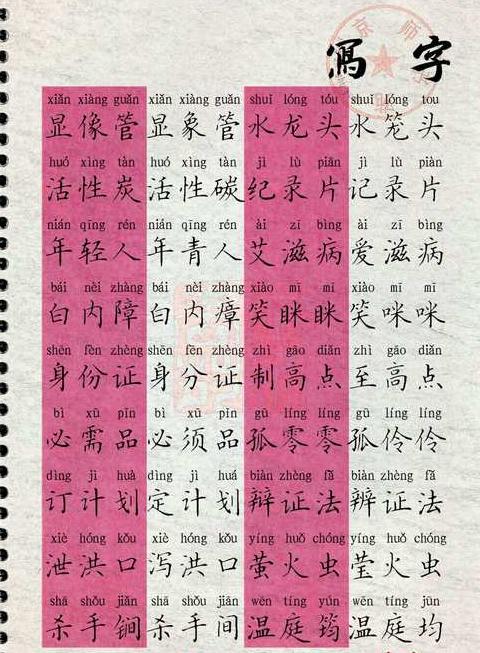 寫字
xiǎn xiàng guǎn xiǎn xiàng guǎn shuǐ lóng tóu shuǐ lóng tou
显像管 显象管 水龙头 水笼头
huó xìng tàn huó xìng tàn jì lù piān jì lù piàn
活性炭 活性碳 纪录片 记录片
nián qīng rén nián qīng rén ài zī bìng ài zī bìng
年轻人 年青人 艾滋病 爱滋病
bái nèi zhàng bái nèi zhàng xiào mī mī xiào mī mī
白内障 白内瘴 笑眯眯 笑咪咪
shēn fèn zhèng shēn fēn zhèng zhì gāo diǎn zhì gāo diǎn
身份证 身分证 制高点 至高点
bì xū pǐn bì xū pǐn gū líng líng gū líng líng
必需品 必须品 孤零零 孤伶伶
dìng jì huà dìng jì huá biàn zhèng fǎ biàn zhèng fǎ
订计划 定计划 辩证法 辨证法
xiè hóng kǒu xiè hóng kǒu yíng huǒ chóng yíng huǒ chóng
泄洪口 泻洪口 萤火虫 莹火虫
shā shǒu jiǎn shā shǒu jiān wēn tíng yún wēn tíng jūn
杀手锏 杀手间 温庭筠 温庭均